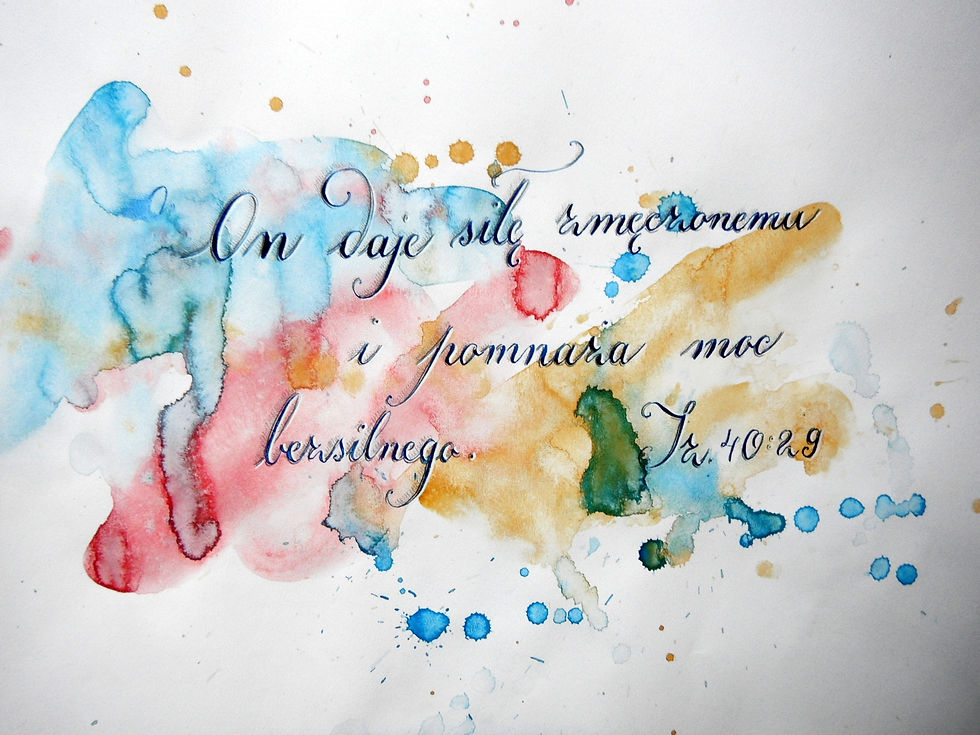 On daje siłę zmęczonemu
i pomnaża moc
bezsilnego. Iz. 40:29